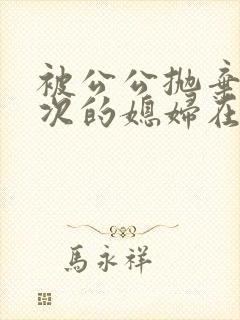 被公公抛弃
次的媳妇在
馬永祥